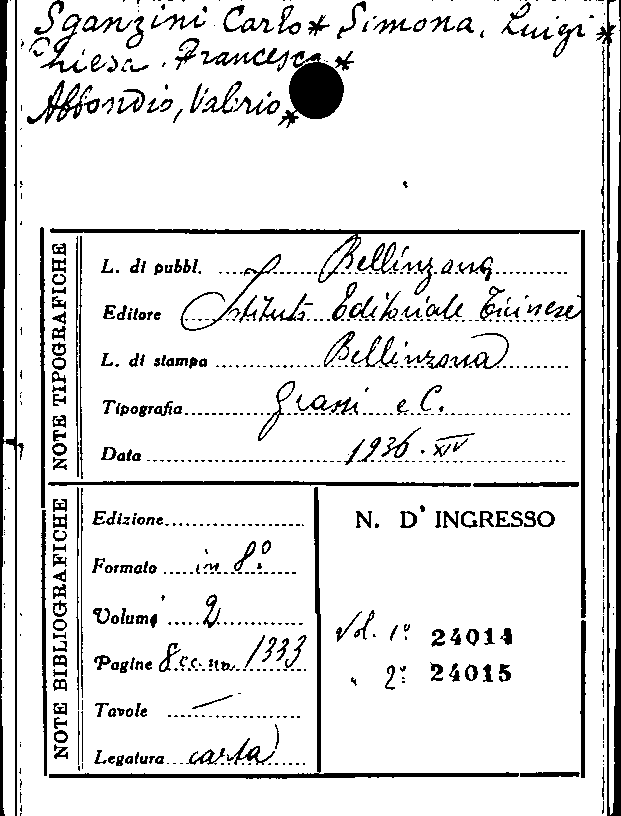 Sganzini Carlo * Simona, Luigi *
Chiesa, Francesco *
Abbondio, Valerio *
NOTE TIPOGRAFICHE
L. di pubbl. Bellinzona
Editore Istituto Editoriale Ticinese
L. di stampa Bellinzona
Tipografia Grassi e C.
Data 1936. XIV
NOTE BIBLIOGRAFICHE
Edizione
Formato in 8º
Volumi 2
Pagine 1333
Tavole —
Legatura carta
N. D' INGRESSO
Vol. 1º 24014
" 2º 24015